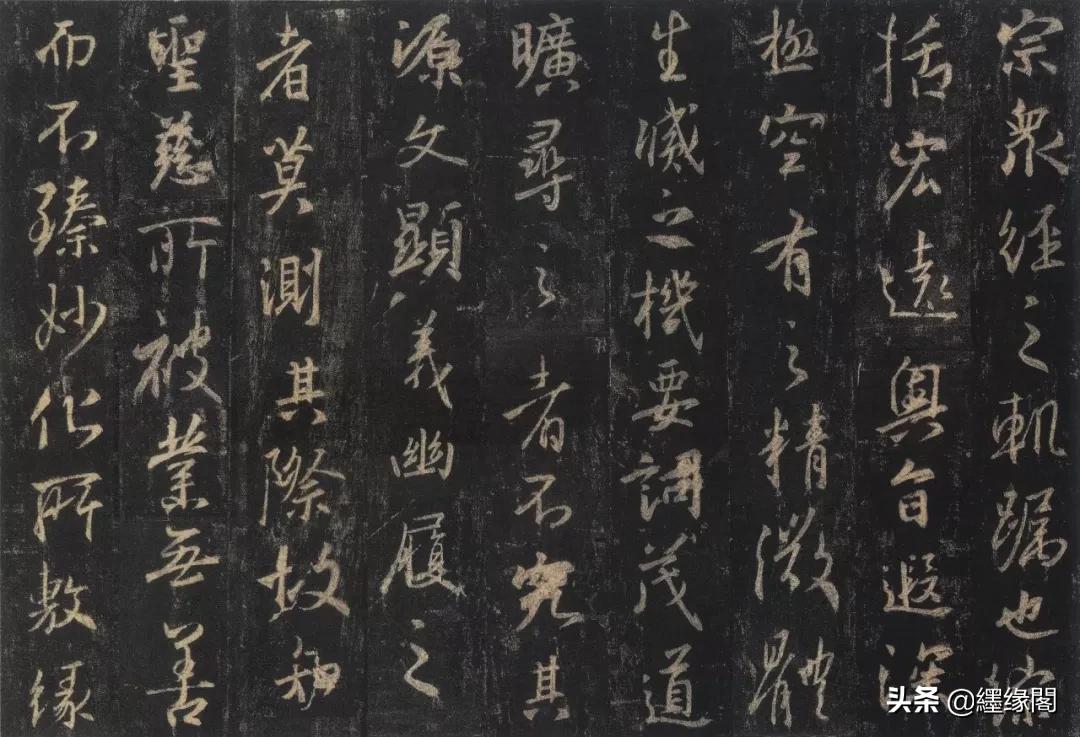 宗衆經之軌躅也綜
括宏遠奧旨遐深
極空有之精微體
生滅之機要詞茂道
曠尋之者不究其
源文顯義幽履之
者莫測其際故知
聖慈所被業無善
而不臻妙化所敷緣
头条 @纆缘閣